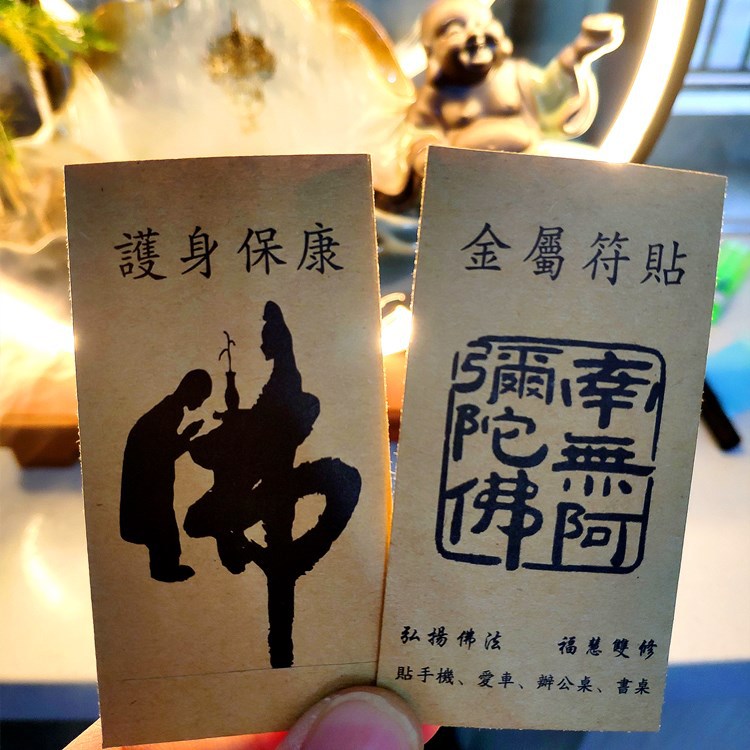 護身保康
佛
金屬符貼
南無阿
彌陀佛
弘揚佛法 福慧雙修
貼手機、愛車、辦公桌、書桌